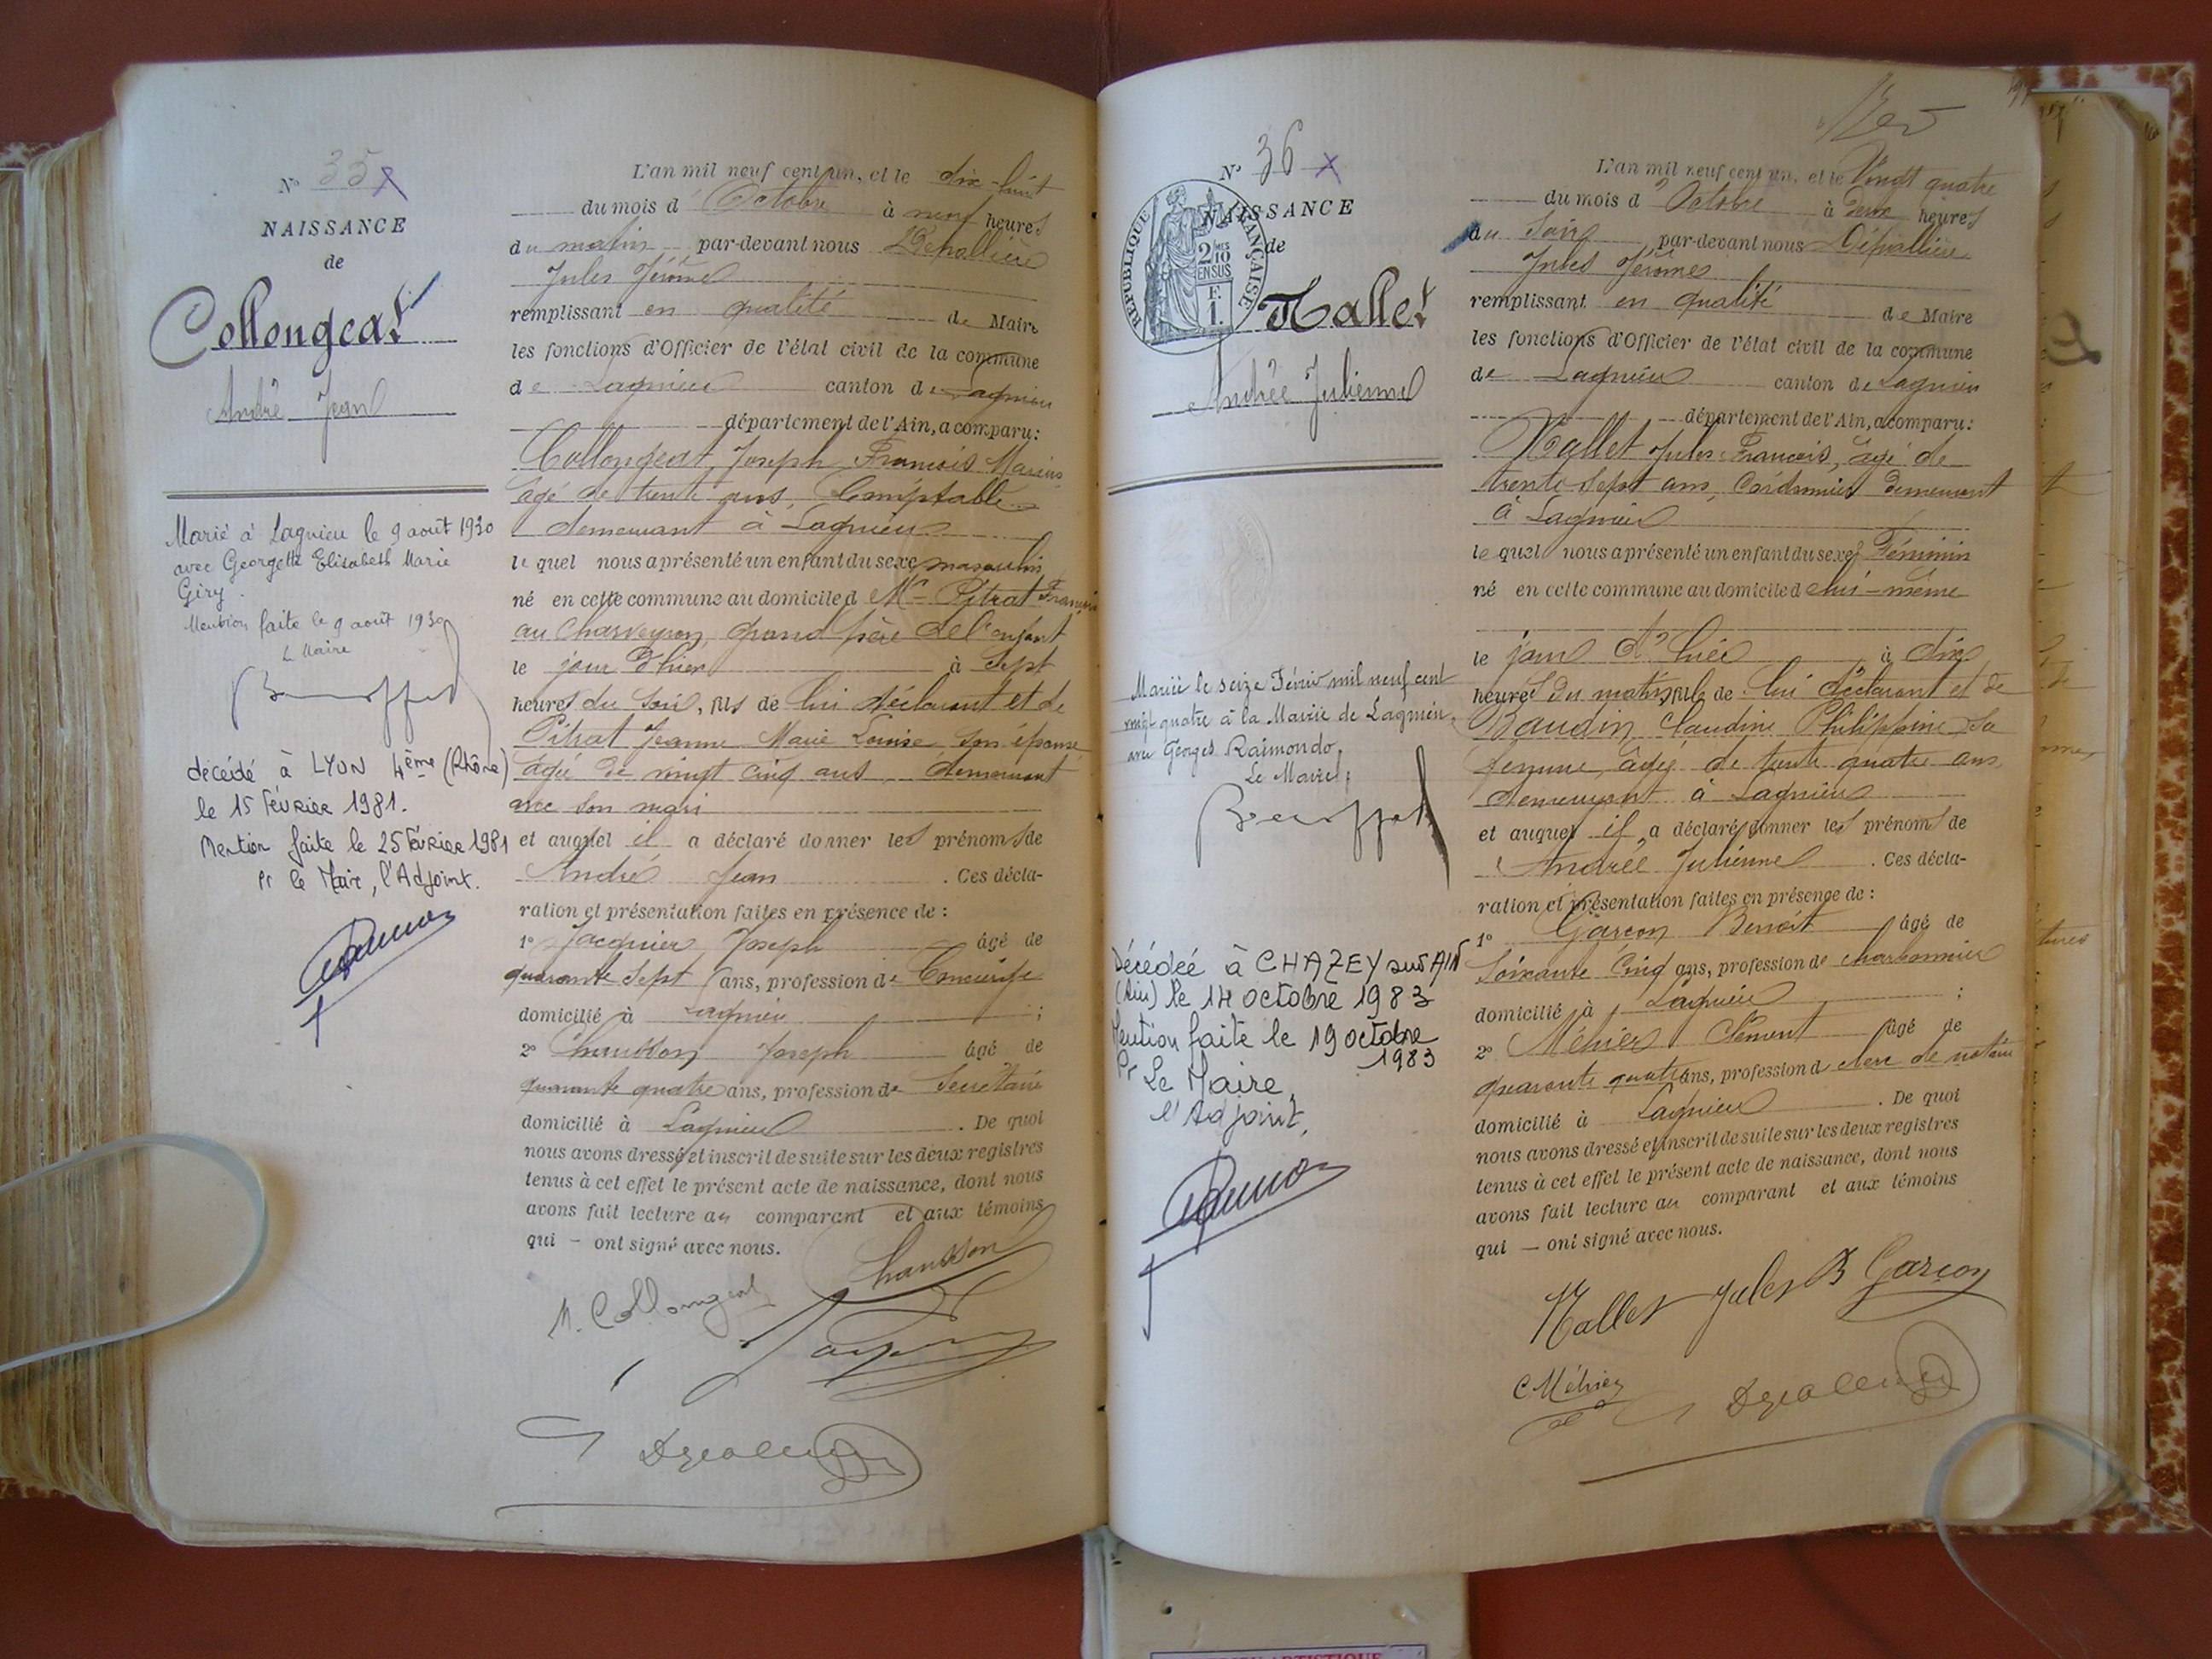 N° 35
NAISSANCE
de
Collongeat
André Jean
Marié à Lagnieu le 9 août 1930
avec Georgette Elisabeth Marie
Giry.
Mention faite le 9 août 1930
Le Maire
décédé à LYON 4ème (Rhône)
le 15 Février 1981.
Mention faite le 25 Février 1981
Pr le Maire, l'Adjoint.
L'an mil neuf cent un, et le dix-huit
du mois d'Octobre à neuf heures
du matin par-devant nous
Jules Jérôme
remplissant en qualité de Maire
les fonctions d'Officier de l'état civil de la commune
de Lagnieu canton de Lagnieu
département de l'Ain, a comparu:
Collongeat, Joseph François Marius
âgé de trente ans, Comptable
demeurant à Lagnieu
lequel nous a présenté un enfant du sexe masculin
né en cette commune au domicile d Mr Pitrat François
au Charveyron, grand père de l'enfant
le jour d'hier à Sept
heures du soir, fils de lui déclarant et de
Pitrat Jeanne Marie Louise son épouse
âgée de vingt cinq ans demeurant
avec son mari
et auquel il a déclaré donner les prénoms de
André Jean . Ces décla-
ration et présentation faites en présence de :
1° Jacquier Joseph âgé de
quarante sept ans, profession de Concierge
domicilié à Lagnieu ;
2° Chausson Joseph âgé de
quarante quatre ans, profession de Secrétaire
domicilié à Lagnieu . De quoi
nous avons dressé et inscrit de suite sur les deux registres
tenus à cet effet le présent acte de naissance, dont nous
avons fait lecture au comparant et aux témoins
qui - ont signé avec nous.
Chausson
M. Collongeat
N° 36
NAISSANCE
de
REPUBLIQUE FRANÇAISE
2/10 EN SUS
F. 1.
Mallet
Andrée Julienne
Mariée le seize Février mil neuf cent
vingt quatre à la Mairie de Lagnieu,
avec Georges Raimondo.
Le Maire,
Décédée à CHAZEY sur AIN
(Ain) le 14 octobre 1983
Mention faite le 19 octobre
1983
Pr Le Maire,
l'Adjoint,
L'an mil neuf cent un, et le Vingt quatre
du mois d'Octobre à Deux heures
du Soir par-devant nous
Jules Jérôme
remplissant en qualité de Maire
les fonctions d'Officier de l'état civil de la commune
de Lagnieu canton de Lagnieu
département de l'Ain, a comparu:
Mallet Jules François, âgé de
trente sept ans, Cordonnier demeurant
à Lagnieu
lequel nous a présenté un enfant du sexe Féminin
né en cette commune au domicile de lui-même
le jour d'hier à dix
heures du matin, fille de lui déclarant et de
Baudin Claudine Philippine sa
femme, âgée de trente quatre ans
demeurant à Lagnieu
et auquel il a déclaré donner les prénoms de
Andrée Julienne . Ces décla-
ration et présentation faites en présence de :
1° Garçon Benoit âgé de
Soixante Cinq ans, profession de charbonnier
domicilié à Lagnieu ;
2° Méhier Clément âgé de
quarante quatre ans, profession de clerc de notaire
domicilié à Lagnieu . De quoi
nous avons dressé et inscrit de suite sur les deux registres
tenus à cet effet le présent acte de naissance, dont nous
avons fait lecture au comparant et aux témoins
qui — ont signé avec nous.
Mallet Jules B Garçon
C Méhier